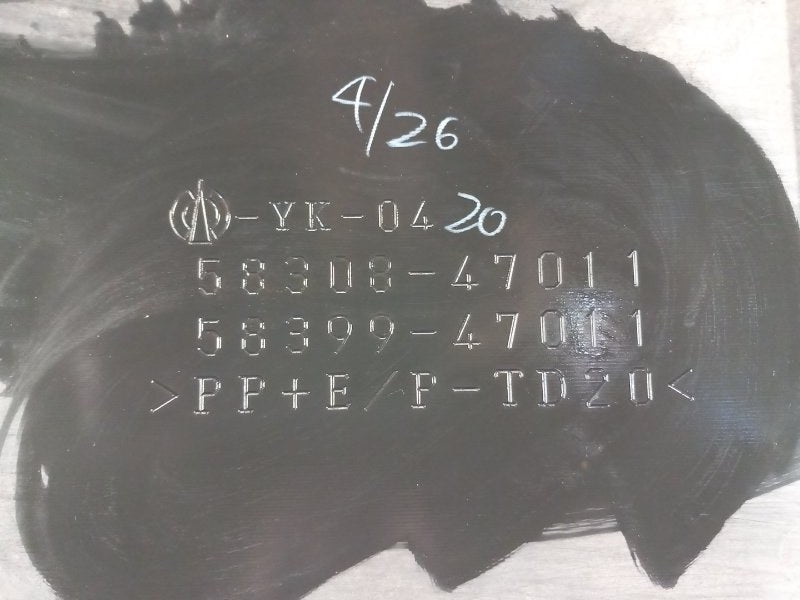 4/26
-YK-04 20
58308-47011
58399-47011
>PP+E/P-TD20<